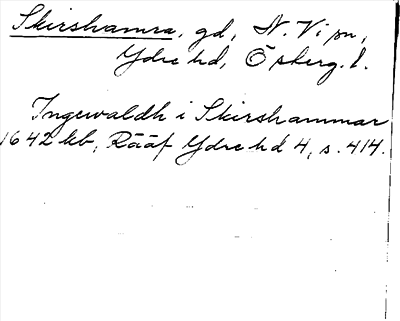 Skirshamra, gd, N. Vi sn,
Ydre hd, Ösberg. l.
Ingewaldh i Skirshammar
1642 kb, Rääf Ydre hd 4, s. 414.